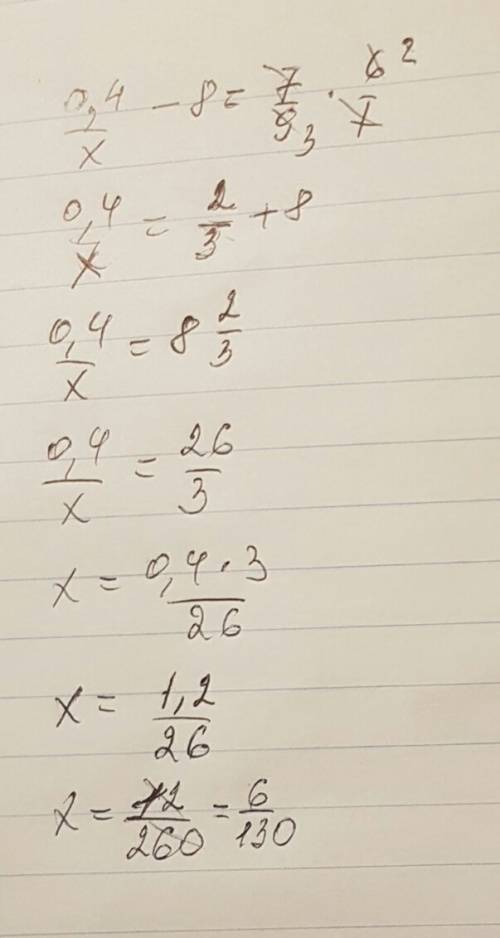 0,4/x - 8 = 7/9 3 · 6 2/7
0,4/x = 2/3 + 8
0,4/x = 8 2/3
0,4/x = 26/3
x = 0,4·3/26
x = 1,2/26
x = 12/260 = 6/130